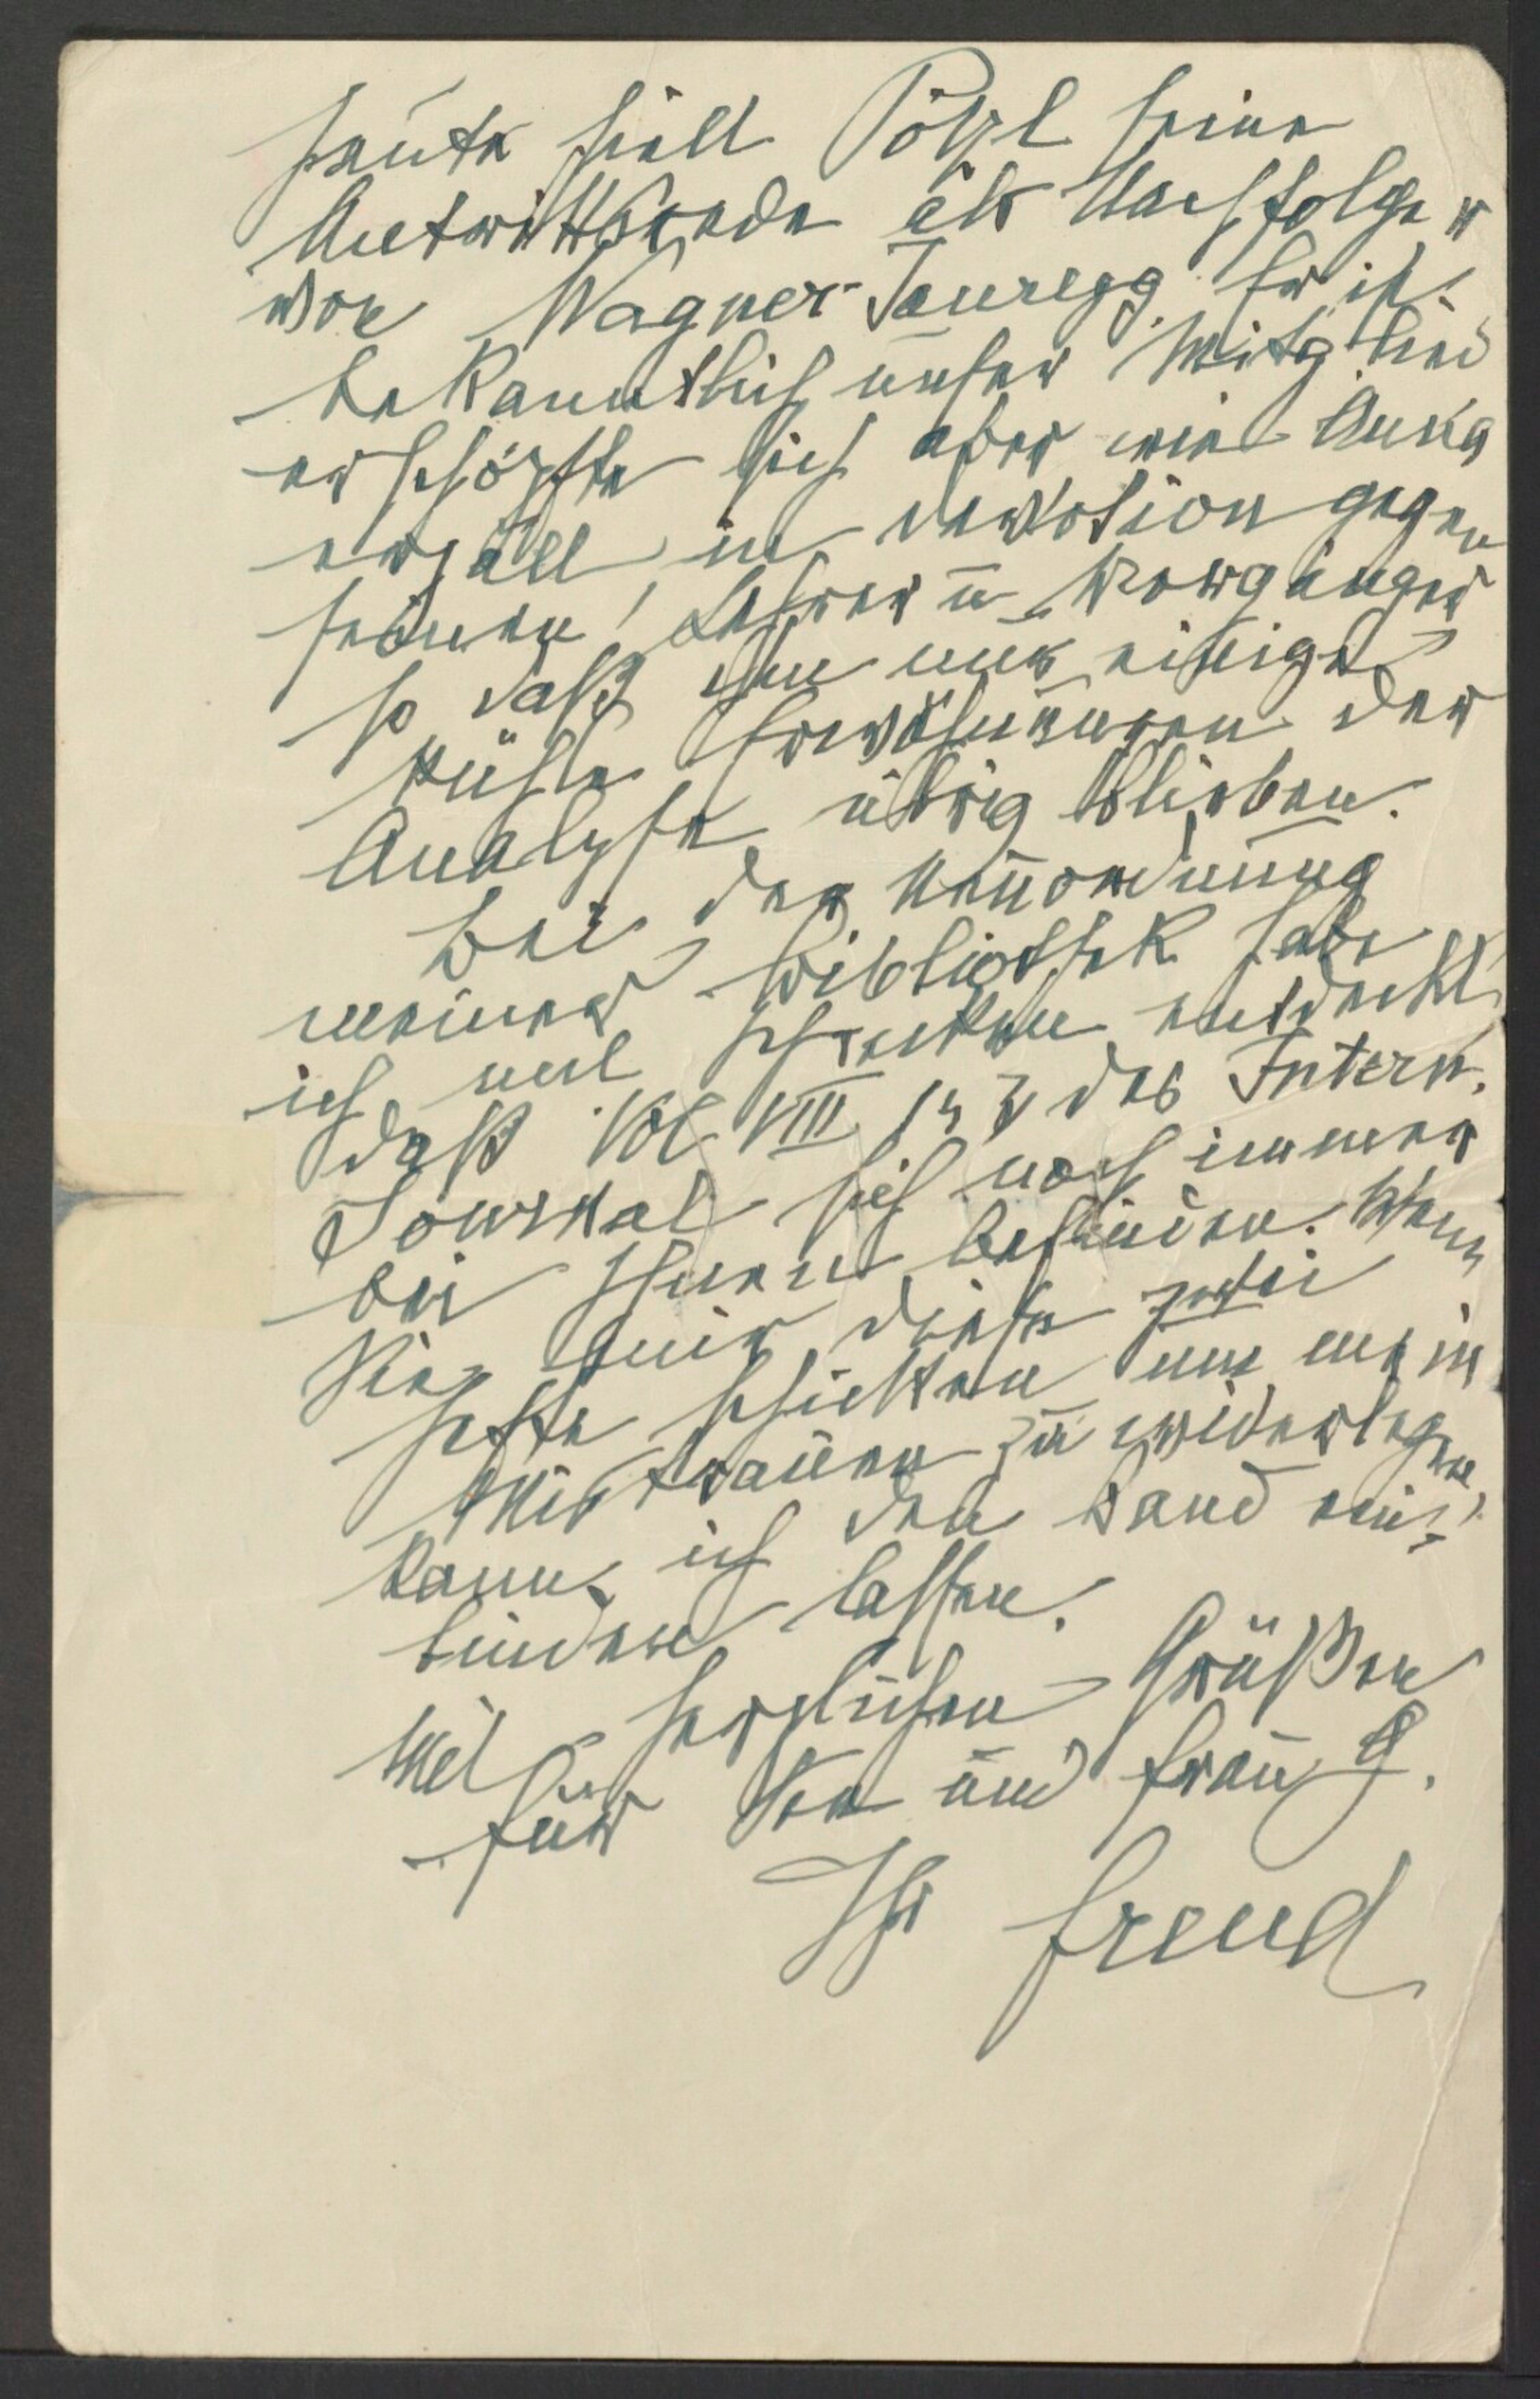 heute hielt Pötzl seine
Antrittsrede als Nachfolger
von Wagner-Jauregg. Er ist
bekanntlich unser Mitglied
erschöpfte sich aber wie Anna
erzält, in devotion gegen
seinen Lehrer u Vorgänger
so daß ihm nur einige
kühle Erwähnungen der
Analyse übrig blieben.
Bei der Neuordnung
meiner Bibliothek habe
ich mit Schrecken entdeckt
daß Vol VIII, 1 u 2 des Intern.
Journal sich noch immer
bei Ihnen befinden. Wenn
Sie mir diese zwei
Hefte schicken um mein
Mistrauen zu widerlegen,
kann ich den Band ein-
binden lassen.
Mit herzlichen Grüßen
für Sie und Frau G.
Ihr Freud